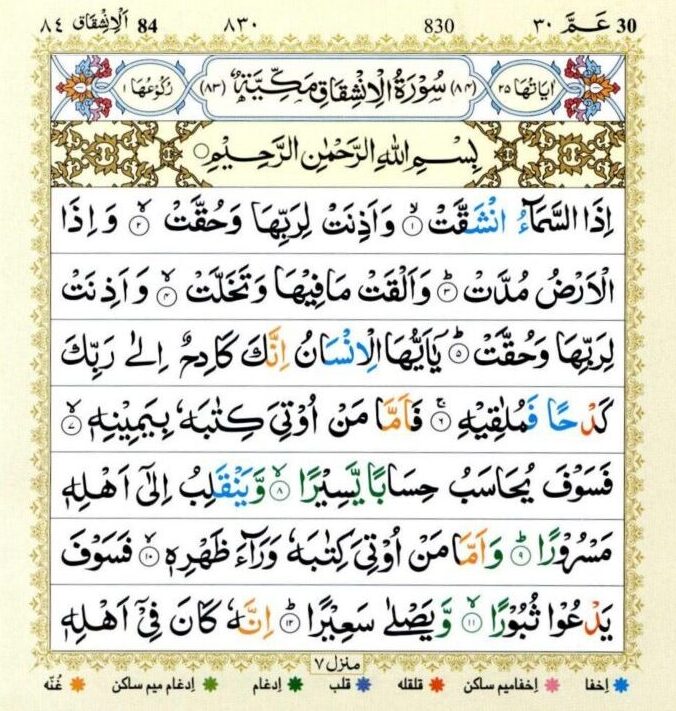 30 عَمَّ ٣٠ 830 ٨٣٠ 84 اَلْاِنْشِقَاق ٨٤
اٰیَاتُهَا ٢٥ (٨٤) سُوْرَةُ الْاِنْشِقَاقِ مَكِّيَّةٌ (٨٣) رُكُوْعُهَا ١
بِسْمِ اللهِ الرَّحْمٰنِ الرَّحِيْمِ
اِذَا السَّمَآءُ انْشَقَّتْ ۙ‏﴿١﴾ وَاَذِنَتْ لِرَبِّهَا وَحُقَّتْ ۙ‏﴿٢﴾ وَاِذَا
الْاَرْضُ مُدَّتْ ؕ‏﴿٣﴾ وَاَلْقَتْ مَا فِيْهَا وَتَخَلَّتْ ۙ‏﴿٤﴾ وَاَذِنَتْ
لِرَبِّهَا وَحُقَّتْ ؕ‏﴿٥﴾ يٰۤاَيُّهَا الْاِنْسَانُ اِنَّكَ كَادِحٌ اِلٰى رَبِّكَ
كَدْحًا فَمُلٰقِيْهِ ۚ‏﴿٦﴾ فَاَمَّا مَنْ اُوْتِىَ كِتٰبَهٗ بِيَمِيْنِهٖ ۙ‏﴿٧﴾
فَسَوْفَ يُحَاسَبُ حِسَابًا يَّسِيْرًا ۙ‏﴿٨﴾ وَّيَنْقَلِبُ اِلٰٓى اَهْلِهٖ
مَسْرُوْرًا ؕ‏﴿٩﴾ وَاَمَّا مَنْ اُوْتِىَ كِتٰبَهٗ وَرَآءَ ظَهْرِهٖ ۙ‏﴿١٠﴾ فَسَوْفَ
يَدْعُوْا ثُبُوْرًا ۙ‏﴿١١﴾ وَّيَصْلٰى سَعِيْرًا ؕ‏﴿١٢﴾ اِنَّهٗ كَانَ فِىْۤ اَهْلِهٖ
منزل ٧
اِخفا قلب اِدغام اِدغام میم ساکن اِخفامیم ساکن قلقله غُنّه